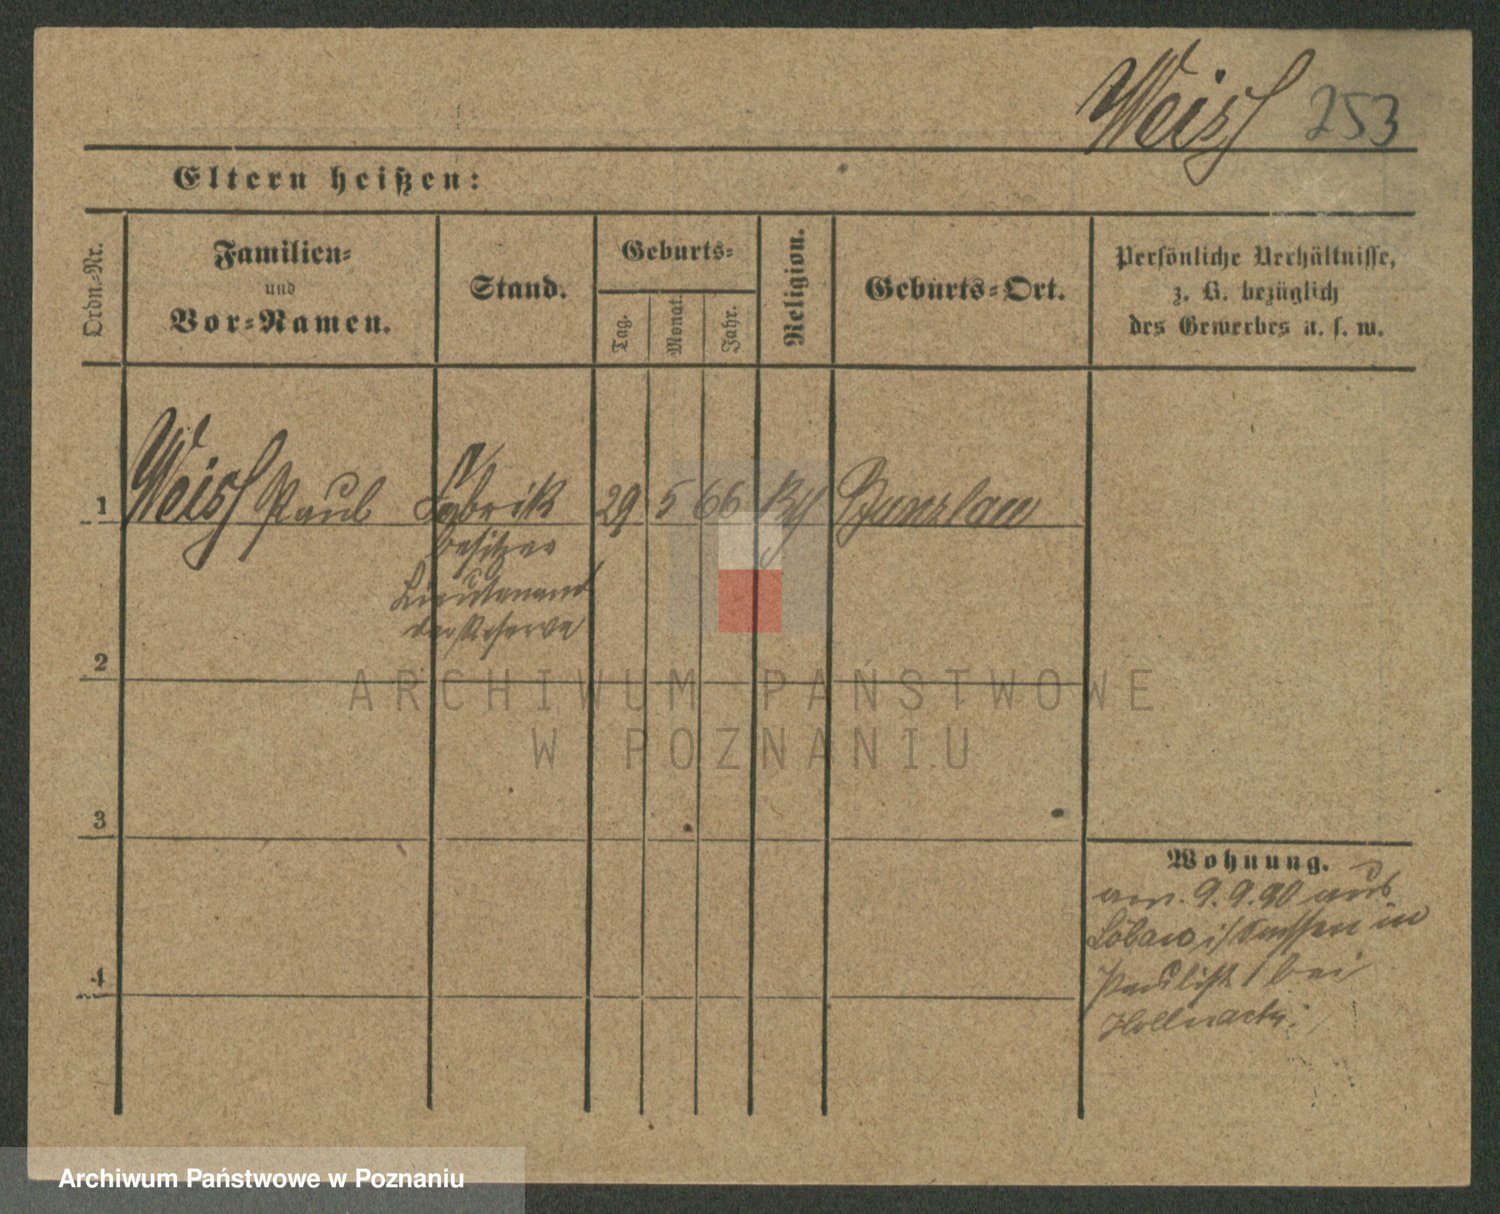 Weiß 253
Eltern heißen:
Ordn.-Nr.
Familien-
und
Vor-Namen.
Stand.
Geburts-
Tag.
Monat.
Jahr.
Religion.
Geburts-Ort.
Persönliche Verhältnisse,
z. B. bezüglich
des Gewerbes u. s. w.
1 Weiß Paul Fabrik 29 5 66 Bunzlau
besitzer
Lieutenant
der Reserve
2
ARCHIWUM PAŃSTWOWE
W POZNANIU
3
Wohnung.
am 9.9.90 aus
Löbau i/ Sachsen in
Paulistr 1 bei
4
Archiwum Państwowe w Poznaniu